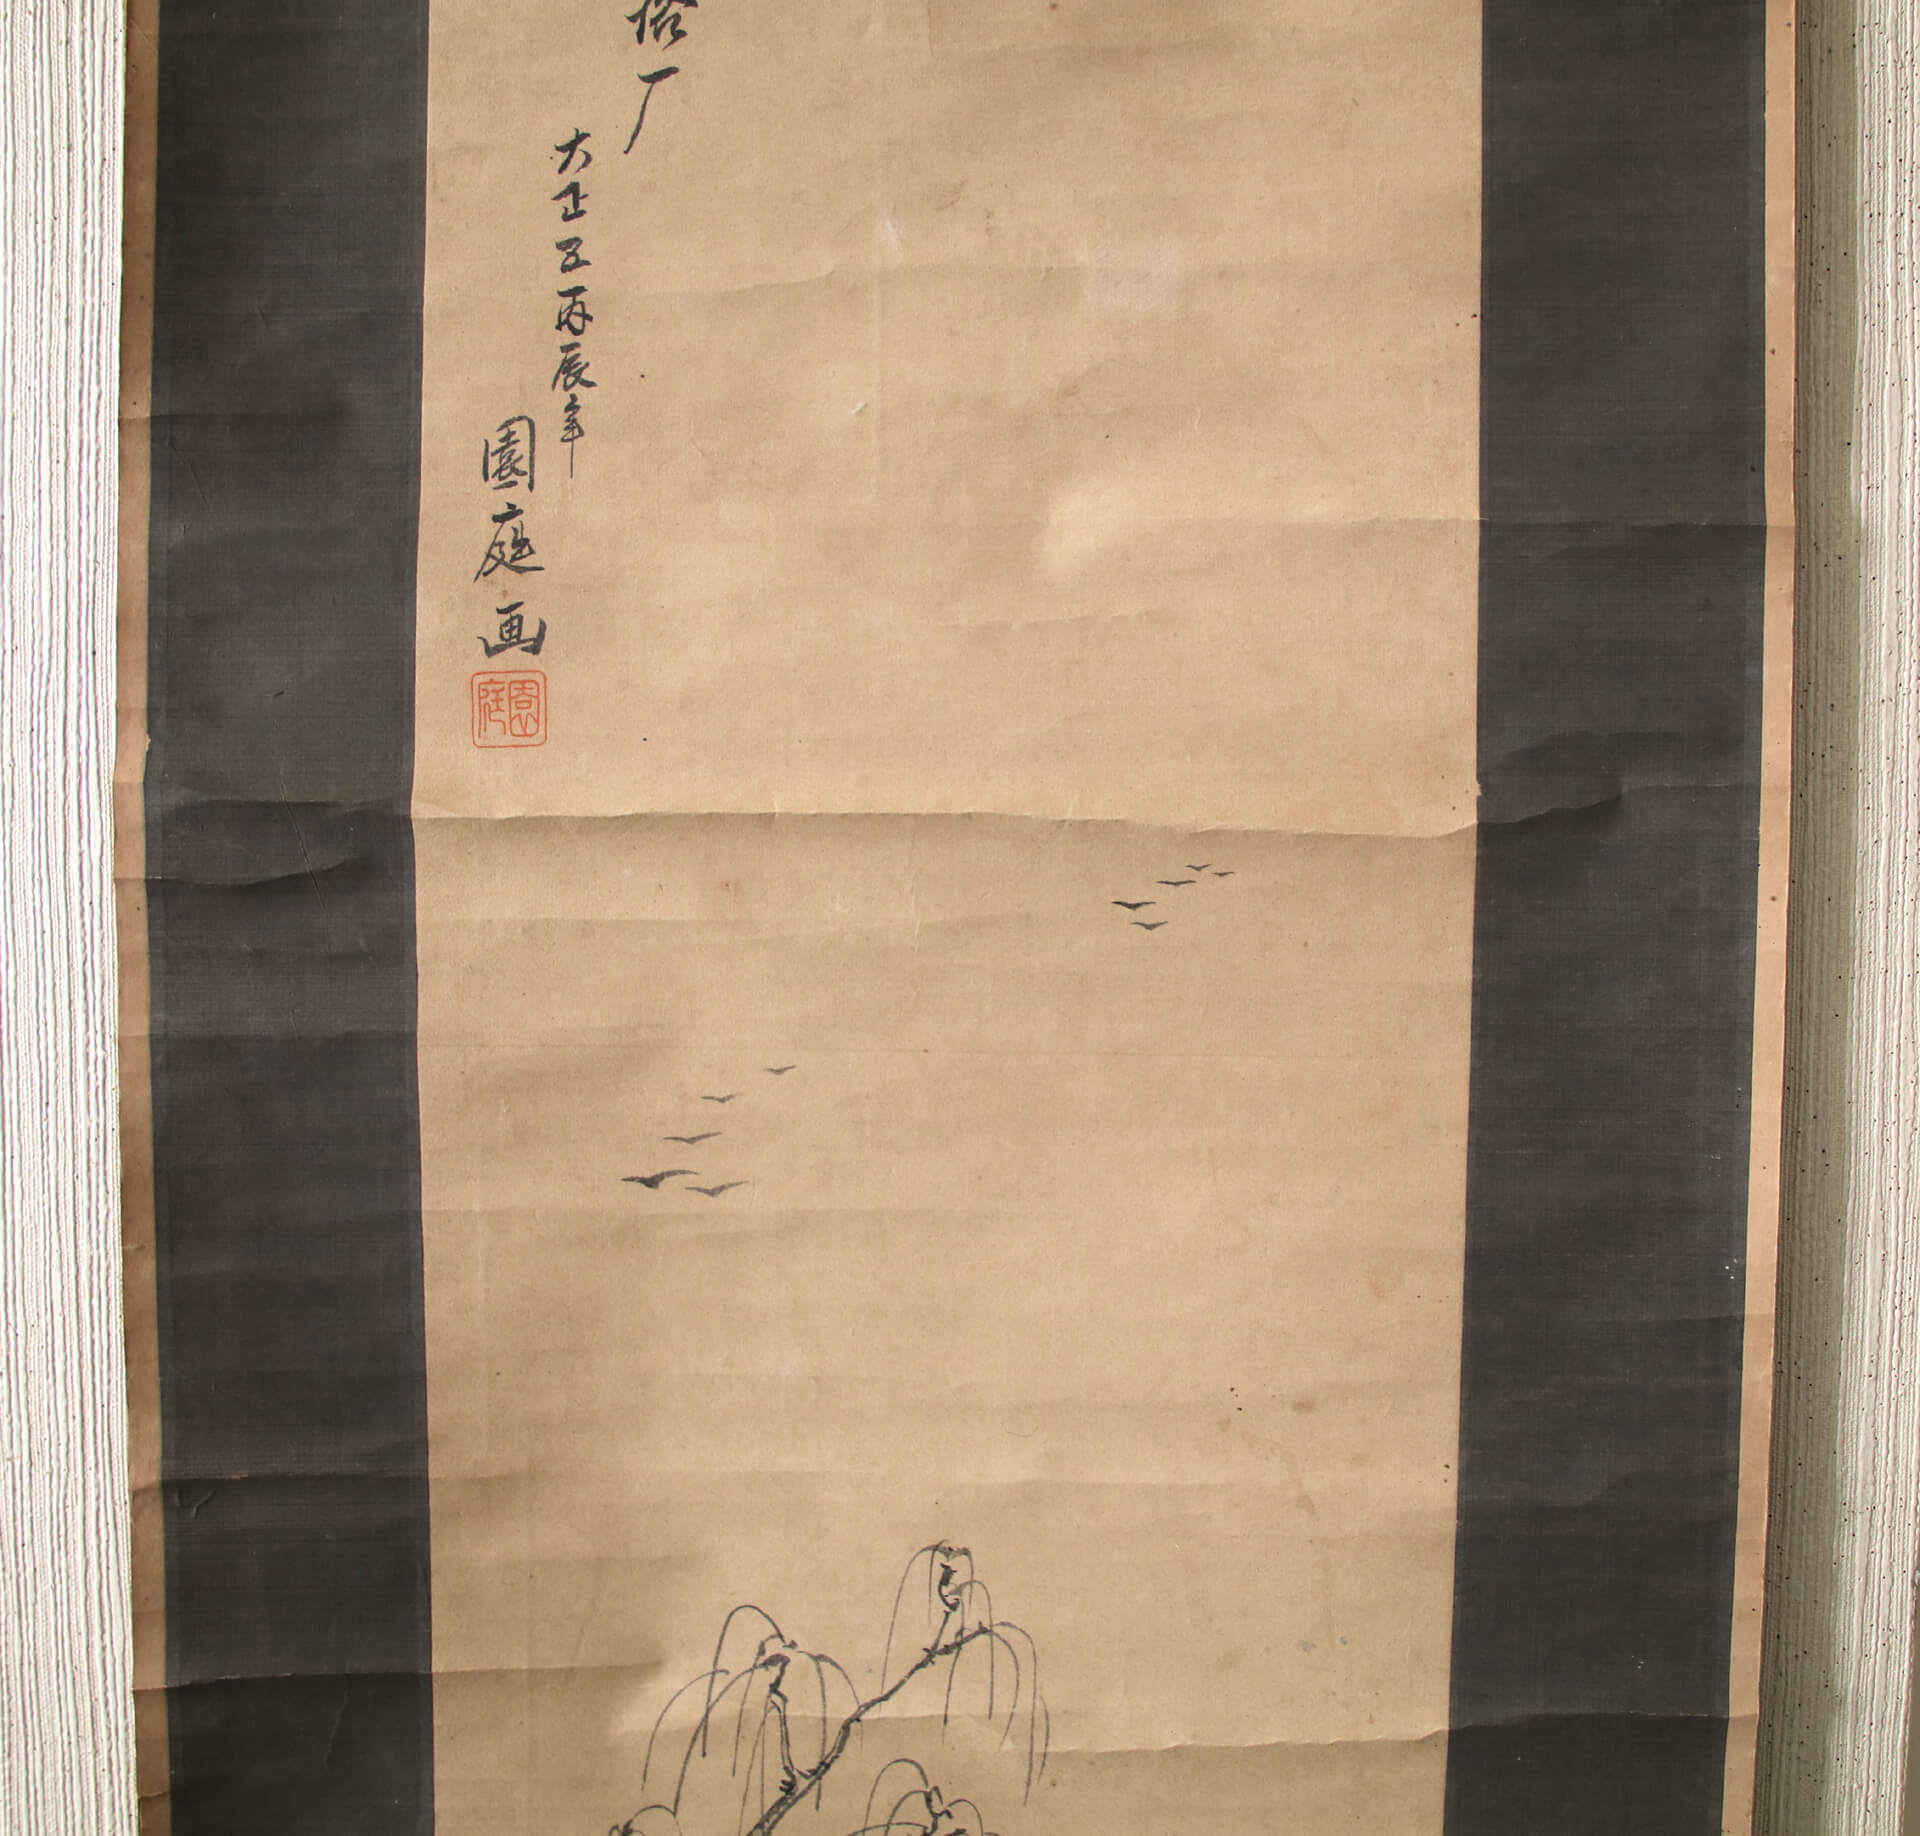 厂
大正五丙辰年
園庭画
園庭